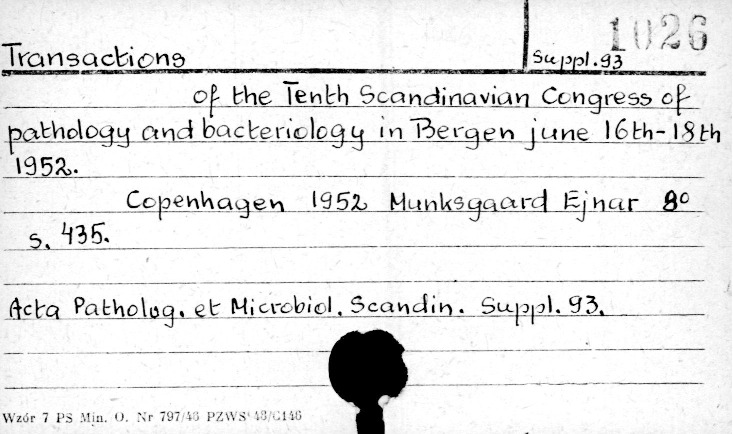 1026
Transactions Suppl. 93
of the Tenth Scandinavian Congress of
pathology and bacteriology in Bergen june 16th-18th
1952.
Copenhagen 1952 Munksgaard Ejnar 8°
s. 435.
Acta Patholog. et Microbiol. Scandin. Suppl. 93.
Wzór 7 PS Min. O. Nr 797/46 PZWS 48/C146